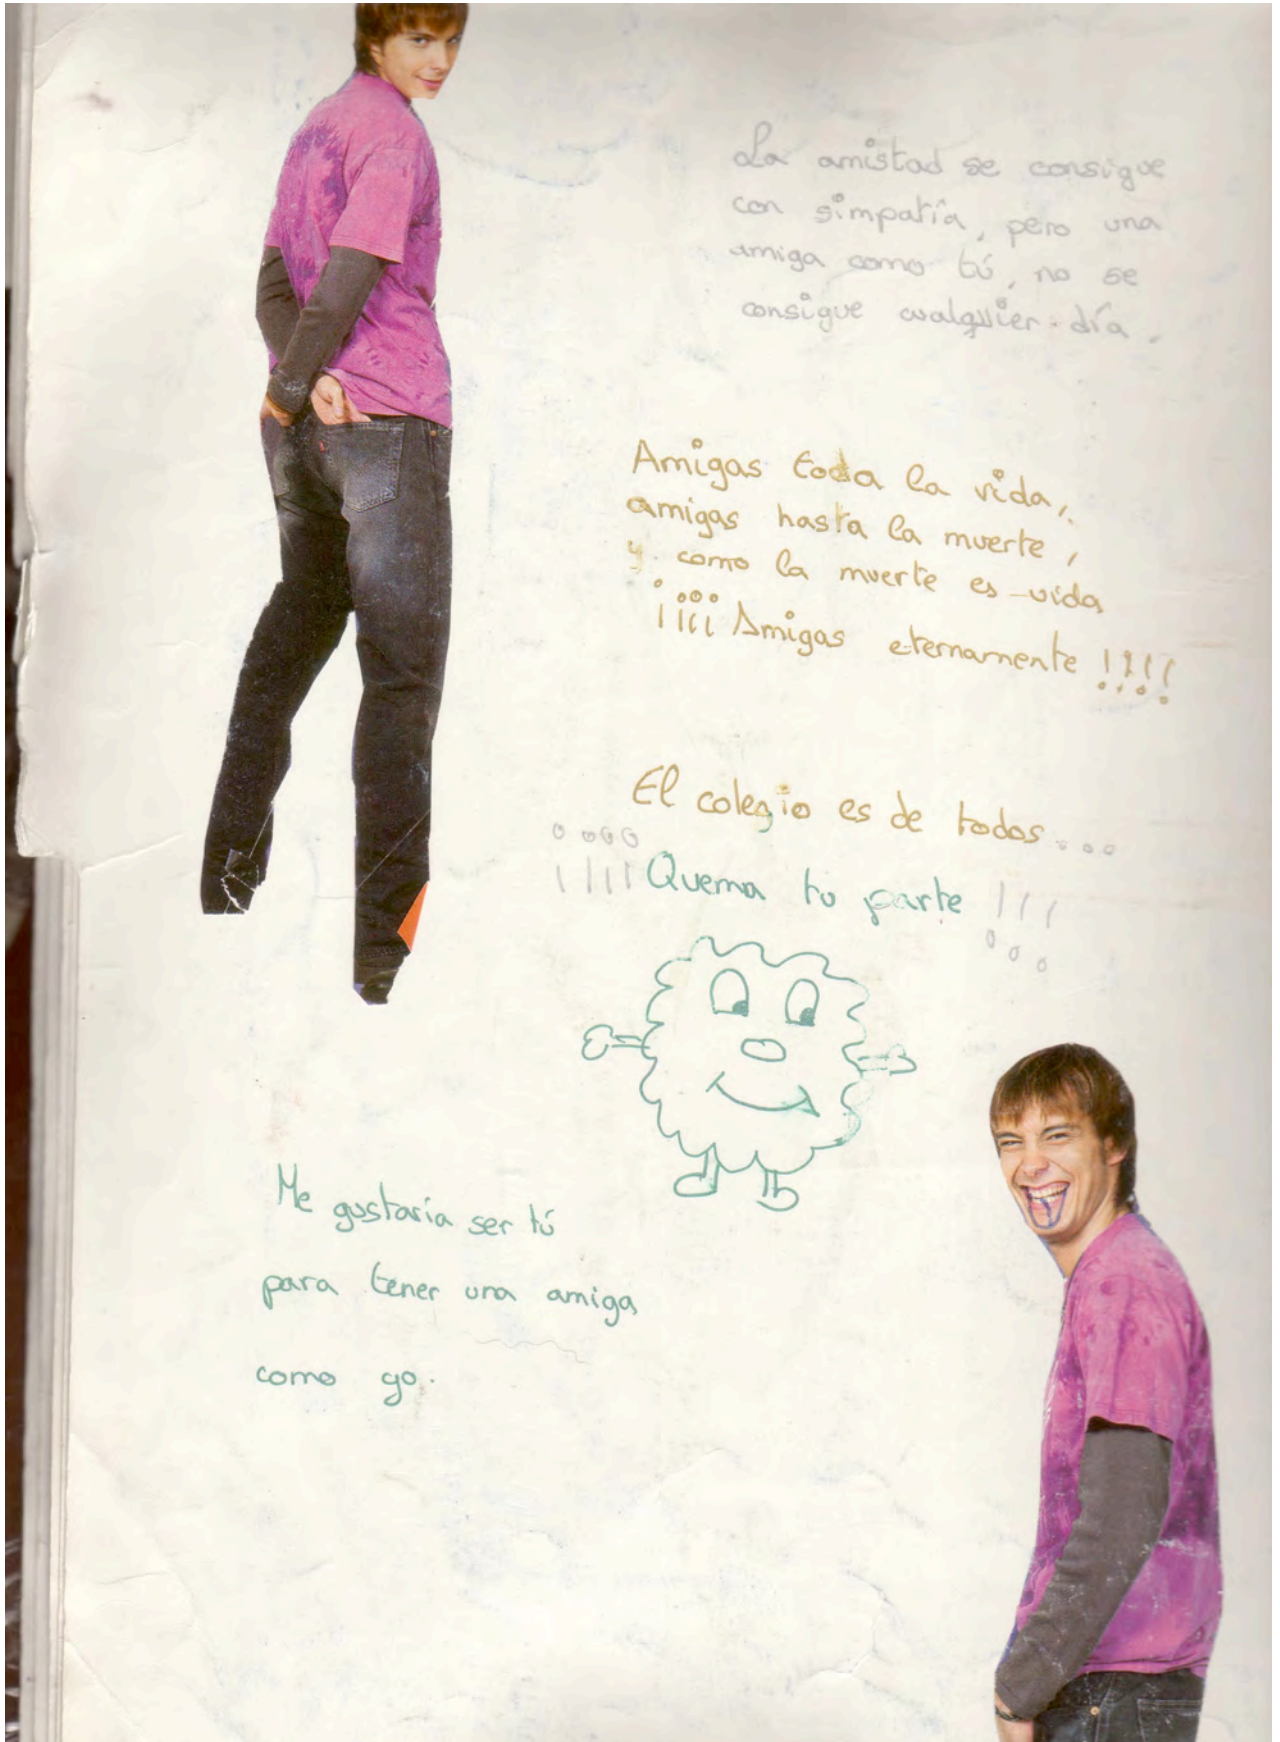 La amistad se consigue
con simpatía, pero una
amiga como tú, no se
consigue cualquier día.
Amigas toda la vida,
amigas hasta la muerte,
y como la muerte es vida
¡¡¡¡Amigas eternamente!!!!
El colegio es de todos...
¡¡¡¡Quema tu parte!!!
Me gustaría ser tú
para tener una amiga
como yo.